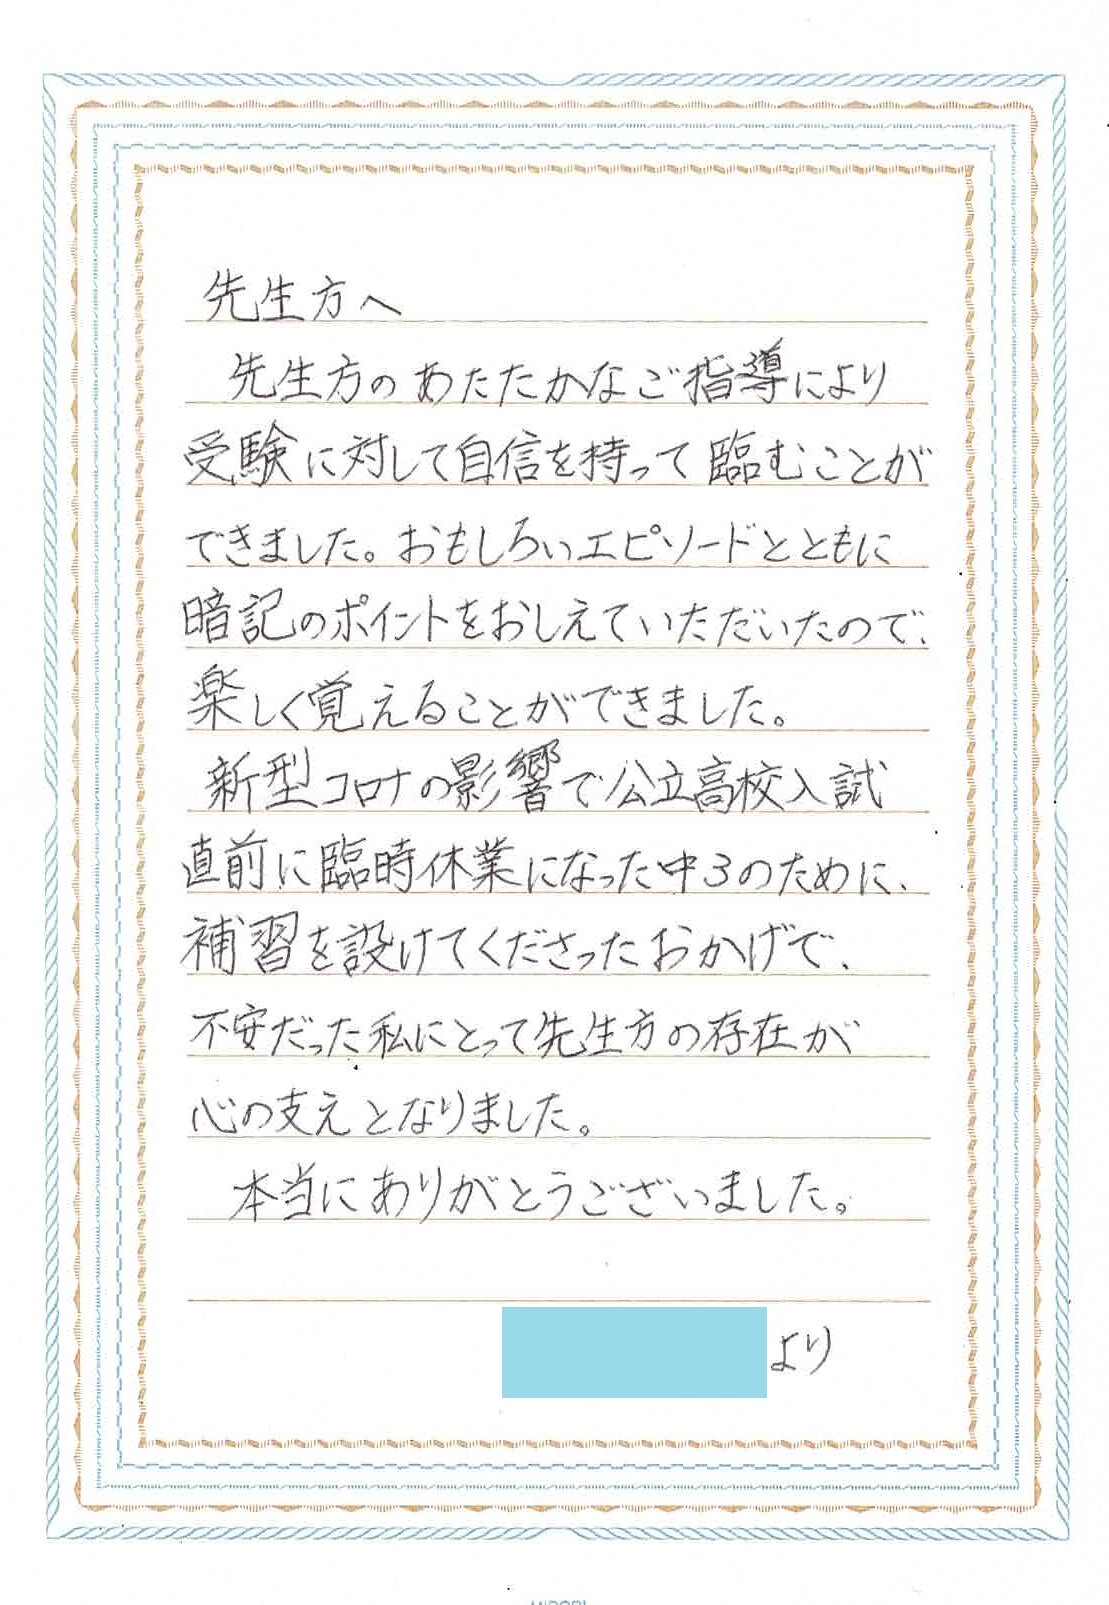 先生方へ
先生方のあたたかなご指導により
受験に対して自信を持って臨むことが
できました。おもしろいエピソードとともに
暗記のポイントをおしえていただいたので、
楽しく覚えることができました。
新型コロナの影響で公立高校入試
直前に臨時休業になった中3のために、
補習を設けてくださったおかげで、
不安だった私にとって先生方の存在が
心の支えとなりました。
本当にありがとうございました。
より